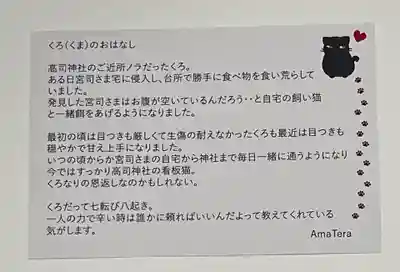 くろ(くま)のおはなし
高司神社のご近所ノラだったくろ。
ある日宮司さま宅に侵入し、台所で勝手に食べ物を食い荒らして
いました。
発見した宮司さまはお腹が空いているんだろう・・と自宅の飼い猫
と一緒餌をあげるようになりました。
最初の頃は目つきも厳しくて生傷の耐えなかったくろも最近は目つきも
穏やかで甘え上手になりました。
いつの頃からか宮司さまの自宅から神社まで毎日一緒に通うようになり
今ではすっかり高司神社の看板猫。
くろなりの恩返しなのかもしれない。
くろだって七転び八起き。
一人の力で辛い時は誰かに頼ればいいんだよって教えてくれている
気がします。
AmaTera